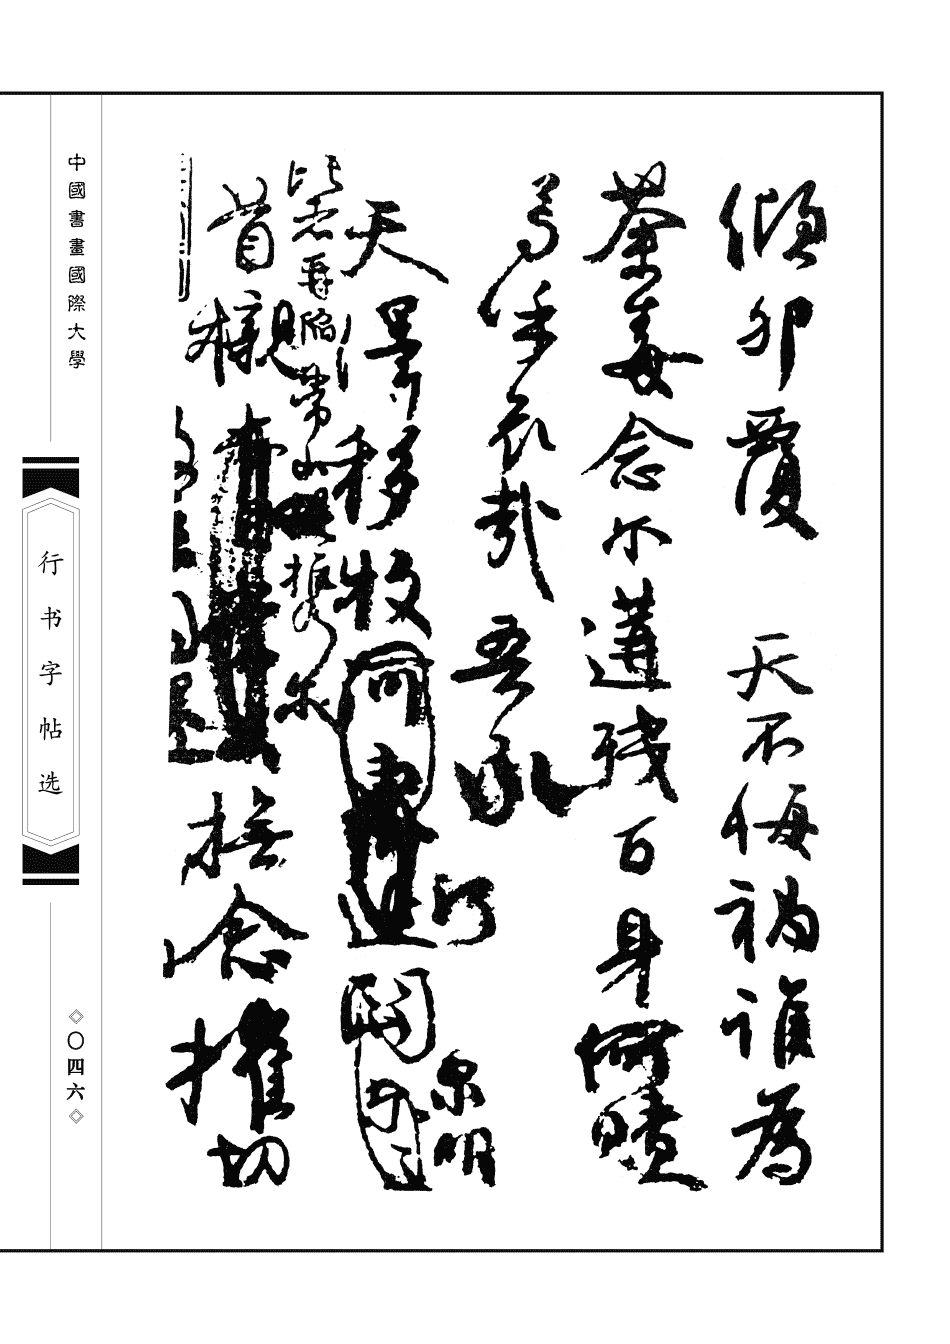 傾卵覆 天不悔禍誰為
荼毒念尔遘殘百身何贖
嗚乎哀哉吾承
天澤移牧河關
泉明
比者再陷常山携尔
首櫬
撫念摧切
中國書畫國際大學
行书字帖选
◇〇四六◇